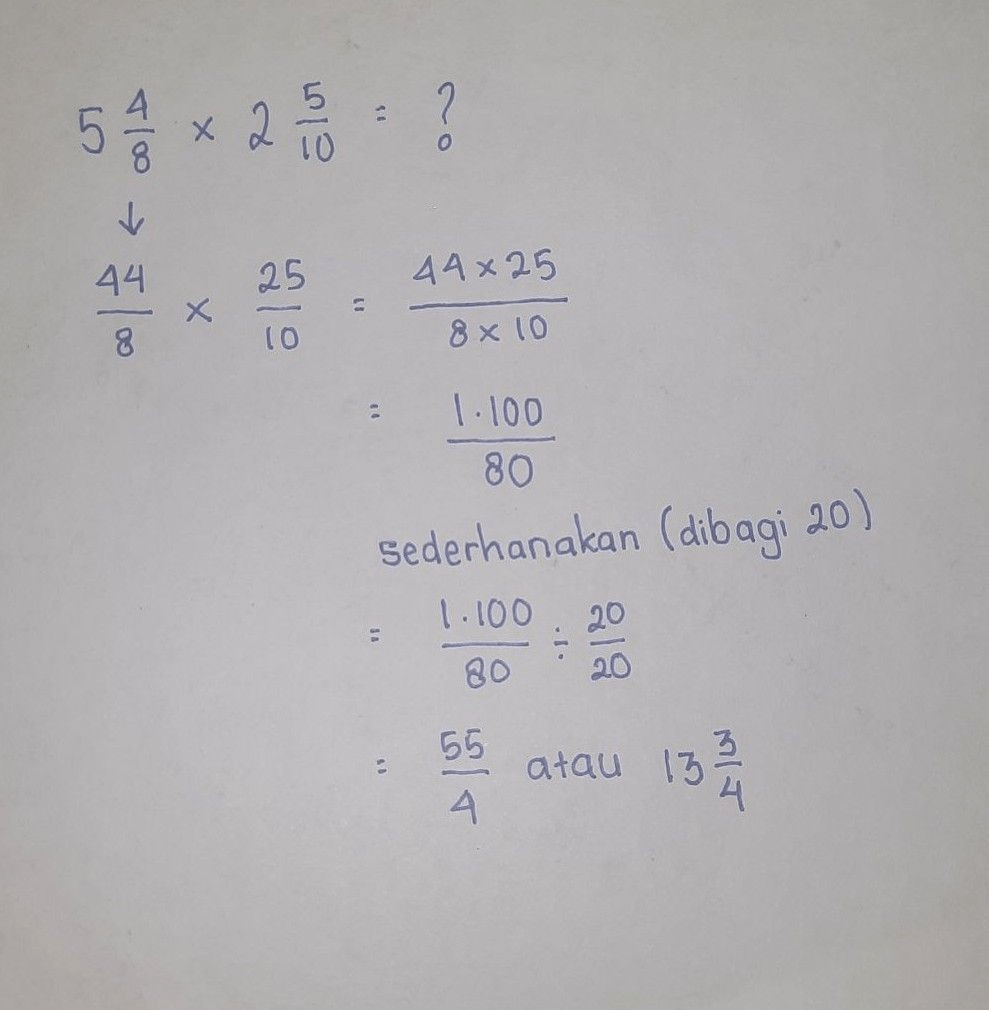 5 4/8 × 2 5/10 = ?
↓
44/8 × 25/10 = 44 × 25/8 × 10
= 1.100/80
sederhanakan (dibagi 20)
= 1.100/80 ÷ 20/20
= 55/4 atau 13 3/4